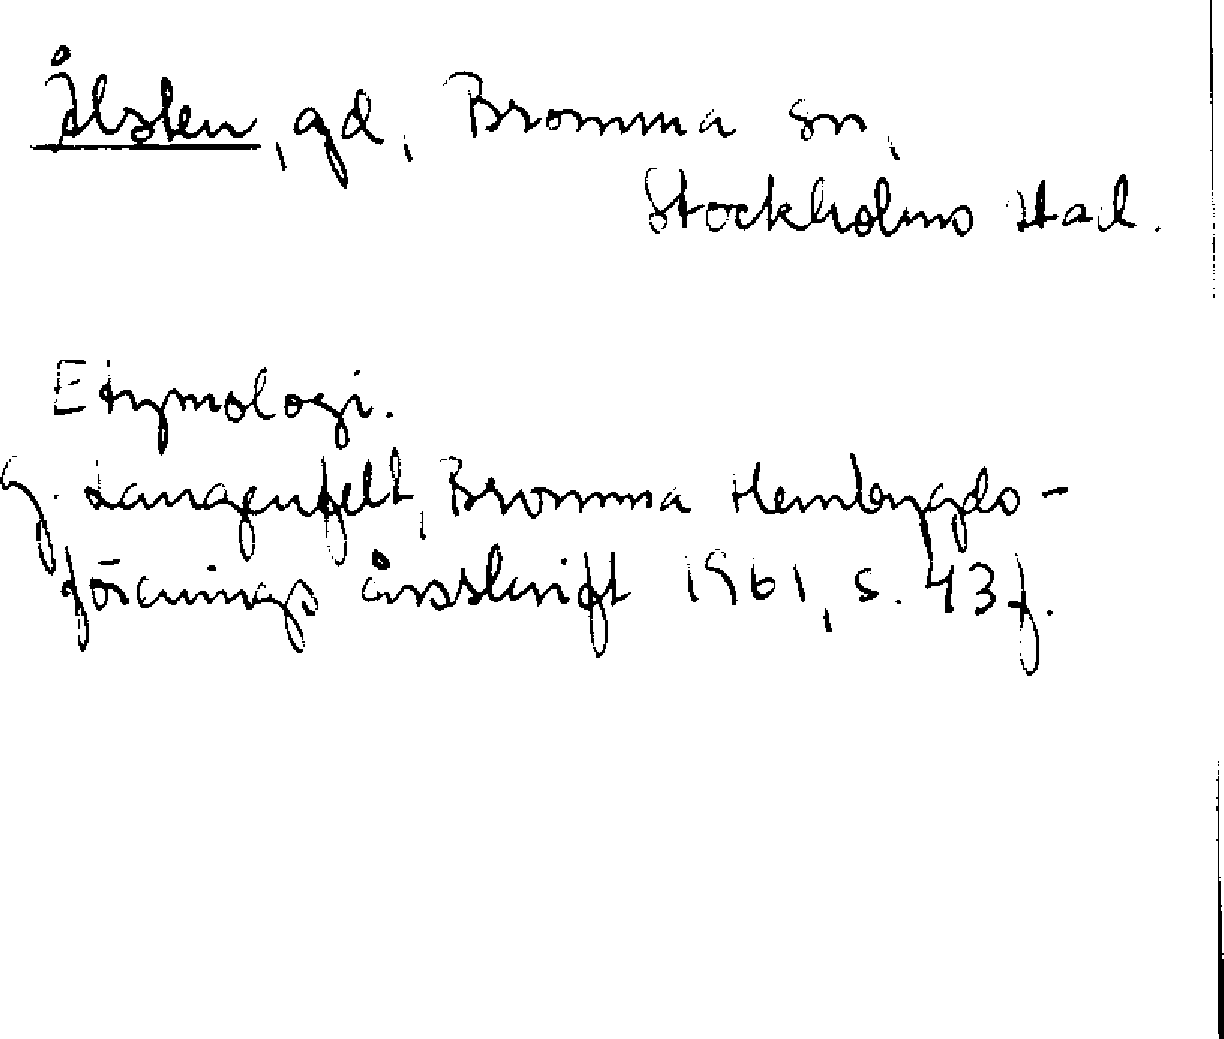 Ålsten, gd, Bromma sn,
Stockholms stad.
Etymologi.
G. Langenfelt, Bromma Hembygds-
förenings årsskrift 1961, s. 43 f.